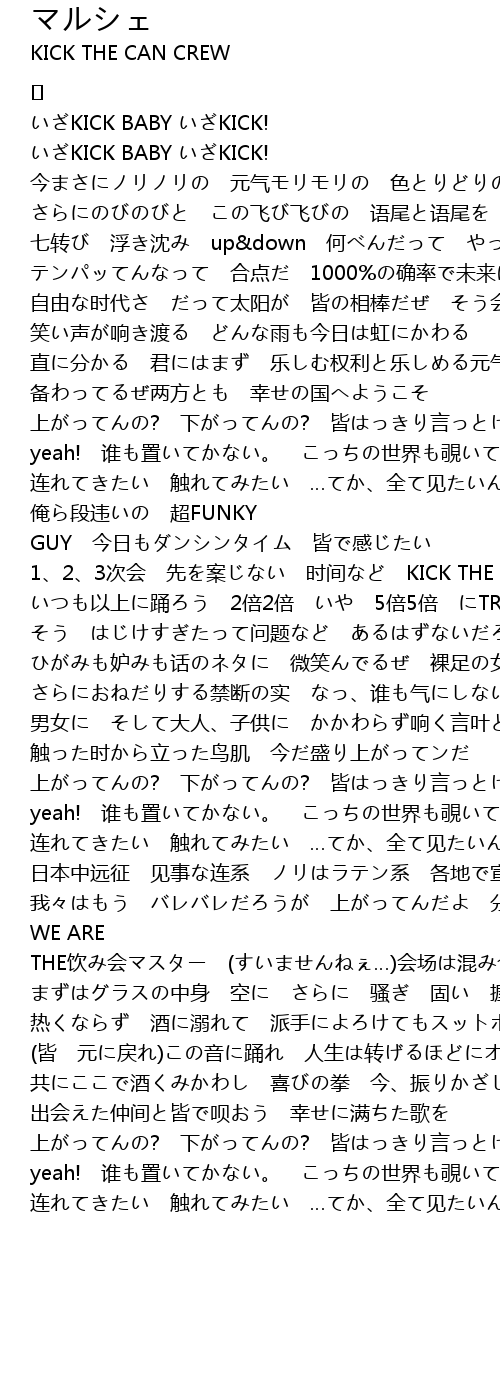 マルシェ
KICK THE CAN CREW
いざKICK BABY いざKICK!
いざKICK BABY いざKICK!
今まさにノリノリの　元气モリモリの　色とりどりの
さらにのびのびと　この飞び飞びの　语尾と语尾を
七转び　浮き沈み　up&down　何べんだって　やっ
テンパッてんなって　合点だ　1000%の确率で未来に
自由な时代さ　だって太阳が　皆の相棒だぜ　そう会
笑い声が响き渡る　どんな雨も今日は虹にかわる
直に分かる　君にはまず　乐しむ权利と乐しめる元气
备わってるぜ两方とも　幸せの国へようこそ
上がってんの?　下がってんの?　皆はっきり言っとけ
yeah!　谁も置いてかない。　こっちの世界も覗いて
连れてきたい　触れてみたい　...てか、全て见たいん
俺ら段违いの　超FUNKY
GUY　今日もダンシンタイム　皆で感じたい
1、2、3次会　先を案じない　时间など　KICK THE
いつも以上に踊ろう　2倍2倍　いや　5倍5倍　にTR
そう　はじけすぎたって问题など　あるはずないだろ
ひがみも妒みも话のネタに　微笑んでるぜ　裸足の女
さらにおねだりする禁断の实　なっ、谁も气にしない
男女に　そして大人、子供に　かかわらず响く言叶と
触った时から立った鸟肌　今だ盛り上がってンだ
上がってんの?　下がってんの?　皆はっきり言っとけ
yeah!　谁も置いてかない。　こっちの世界も覗いて
连れてきたい　触れてみたい　...てか、全て见たいん
日本中远征　见事な连系　ノリはラテン系　各地で宣
我々はもう　バレバレだろうが　上がってんだよ　分
WE ARE
THE饮み会マスター　(すいませんねぇ...)会场は混み
まずはグラスの中身　空に　さらに　骚ぎ　固い　握
热くならず　酒に溺れて　派手によろけてもスットボ
(皆　元に戻れ)この音に踊れ　人生は转げるほどにオ
共にここで酒くみかわし　喜びの拳　今、振りかざし
出会えた仲间と皆で呗おう　幸せに满ちた歌を
上がってんの?　下がってんの?　皆はっきり言っとけ
yeah!　谁も置いてかない。　こっちの世界も覗いて
连れてきたい　触れてみたい　...てか、全て见たいん